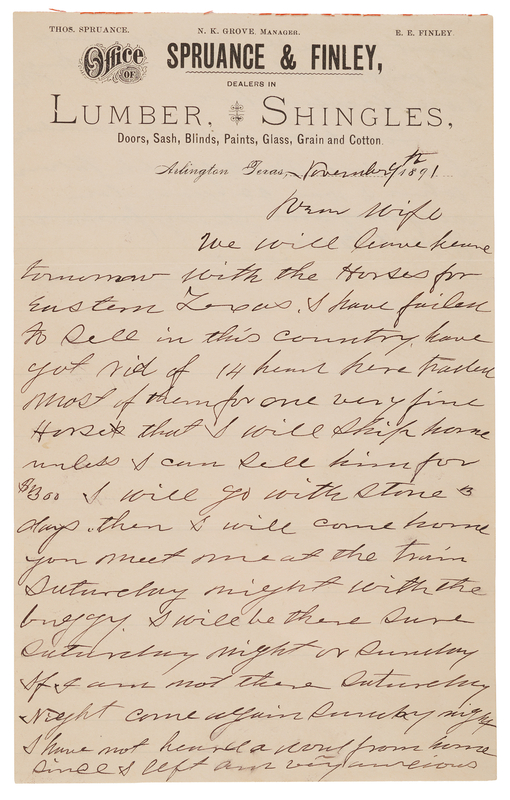 THOS. SPRUANCE. N. K. GROVE. MANAGER. E. E. FINLEY.
Office OF SPRUANCE & FINLEY,
DEALERS IN
LUMBER, SHINGLES,
Doors, Sash, Blinds, Paints, Glass, Grain and Cotton.
Arlington Texas, November 4th 1891
Dear Wife
We will leave heare
tomorrow with the Horses for
Eastern Texas. I have failed
to sell in this country. have
got rid of 14 head here traded
most of them for one very fine
Horse that I will ship home
unless I can sell him for
$300 I will go with Stone 3
days. then I will come home
you meet me at the train
Saturday night with the
buggy. I will be there sure
Saturday night or Sunday
if I am not there Saturday
Night come again Sunday night
I have not heared a word from home
since I left am very anxious